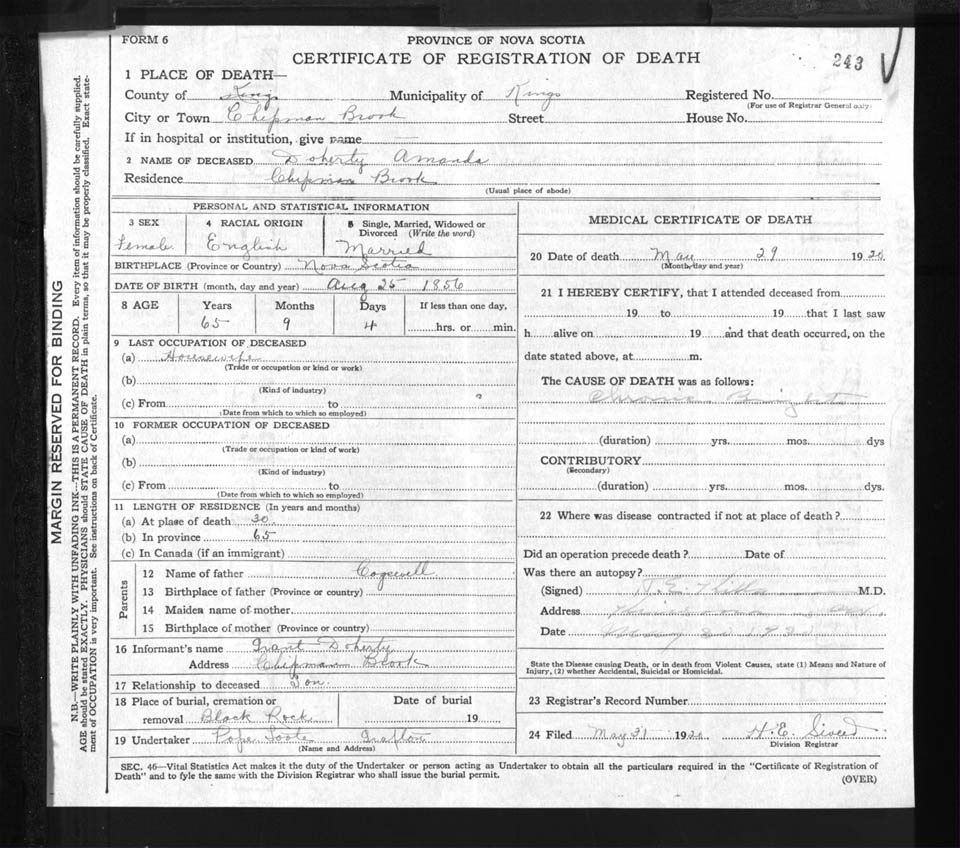 FORM 6
PROVINCE OF NOVA SCOTIA
CERTIFICATE OF REGISTRATION OF DEATH
243
1 PLACE OF DEATH—
County of Kings Municipality of Kings Registered No.
(For use of Registrar General only)
City or Town Chipman Brook Street House No.
If in hospital or institution, give name —
2 NAME OF DECEASED Doherty Amanda
Residence Chipman Brook
(Usual place of abode)
PERSONAL AND STATISTICAL INFORMATION
3 SEX 4 RACIAL ORIGIN 5 Single, Married, Widowed or Divorced (Write the word)
Female English Married
BIRTHPLACE (Province or Country) Nova Scotia
DATE OF BIRTH (month, day and year) Aug 25 1856
8 AGE Years Months Days If less than one day,
65 9 4 hrs. or min.
9 LAST OCCUPATION OF DECEASED
(a) Housewife
(Trade or occupation or kind or work)
(b)
(Kind of industry)
(c) From to
(Date from which to which so employed)
10 FORMER OCCUPATION OF DECEASED
(a)
(Trade or occupation or kind of work)
(b)
(Kind of industry)
(c) From to
(Date from which to which so employed)
11 LENGTH OF RESIDENCE (In years and months)
(a) At place of death 30
(b) In province 65
(c) In Canada (if an immigrant)
Parents
12 Name of father Cogswell
13 Birthplace of father (Province or country)
14 Maiden name of mother
15 Birthplace of mother (Province or country)
16 Informant's name Grant Doherty
Address Chipman Brook
17 Relationship to deceased Son.
18 Place of burial, cremation or Date of burial
removal Black Rock 19
19 Undertaker Pope Foote Grafton
(Name and Address)
MEDICAL CERTIFICATE OF DEATH
20 Date of death May 29 1920
(Month day and year)
21 I HEREBY CERTIFY, that I attended deceased from
19 to 19 that I last saw
h alive on 19 and that death occurred, on the
date stated above, at m.
The CAUSE OF DEATH was as follows:
Chronic Brights
(duration) yrs. mos. dys
CONTRIBUTORY
(Secondary)
(duration) yrs. mos. dys.
22 Where was disease contracted if not at place of death?
Did an operation precede death? Date of
Was there an autopsy?
(Signed) M.D.
Address
Date
State the Disease causing Death, or in death from Violent Causes, state (1) Means and Nature of
Injury, (2) whether Accidental, Suicidal or Homicidal.
23 Registrar's Record Number
24 Filed May 31 1920 H. E.
Division Registrar
SEC. 46—Vital Statistics Act makes it the duty of the Undertaker or person acting as Undertaker to obtain all the particulars required in the "Certificate of Registration of
Death" and to fyle the same with the Division Registrar who shall issue the burial permit.
(OVER)
MARGIN RESERVED FOR BINDING
N.B.—WRITE PLAINLY WITH UNFADING INK—THIS IS A PERMANENT RECORD. Every item of information should be carefully supplied.
AGE should be stated EXACTLY. PHYSICIANS should STATE CAUSE OF DEATH in plain terms, so that it may be properly classified. Exact state-
ment of OCCUPATION is very important. See instructions on back of Certificate.